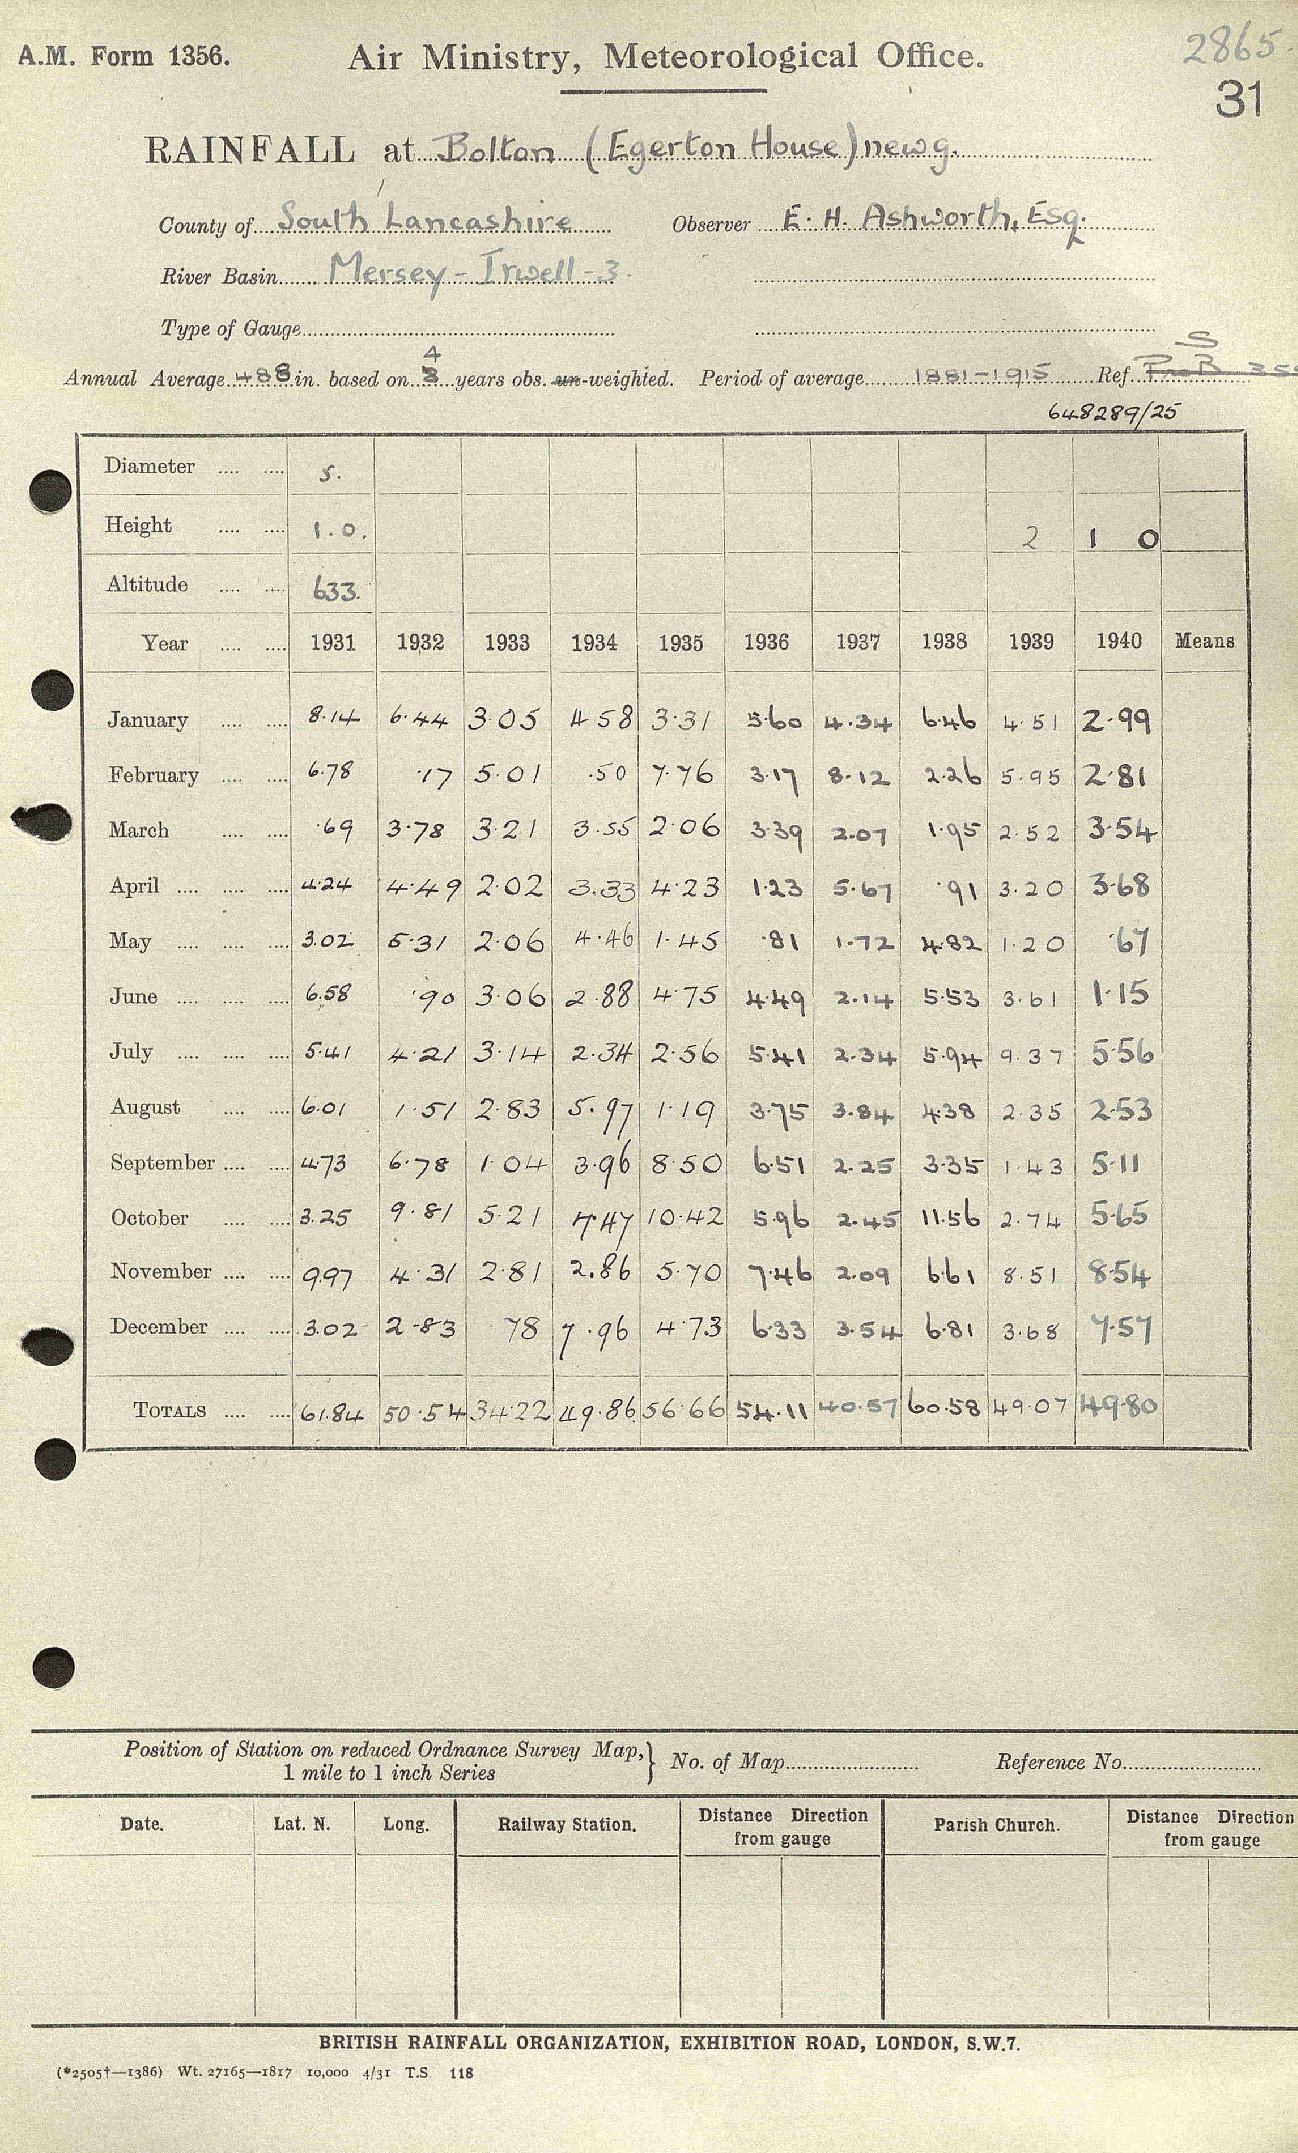 A.M. Form 1356. Air Ministry, Meteorological Office. 2865.
31
RAINFALL at Bolton (Egerton House) new g.
County of South Lancashire Observer E. H. Ashworth, Esq.
River Basin Mersey - Irwell - 3.
Type of Gauge
4
S
Annual Average 48.8 in. based on 3 years obs. un-weighted. Period of average 1881-1915 Ref.
648289/25
Diameter .... .... 5.
Height .... .... 1.0. 2 1 0
Altitude .... .... 633.
Year .... .... 1931 1932 1933 1934 1935 1936 1937 1938 1939 1940 Means
January .... .... 8.14 6.44 3.05 4.58 3.31 5.60 4.34 6.46 4.51 2.99
February .... .... 6.78 .17 5.01 .50 7.76 3.17 8.12 2.26 5.95 2.81
March .... .... .69 3.78 3.21 3.55 2.06 3.39 2.07 1.95 2.52 3.54
April .... .... .... 4.24 4.49 2.02 3.33 4.23 1.23 5.67 .91 3.20 3.68
May .... .... .... 3.02 5.31 2.06 4.46 1.45 .81 1.72 4.82 1.20 .67
June .... .... .... 6.58 .90 3.06 2.88 4.75 4.49 2.14 5.53 3.61 1.15
July .... .... .... 5.41 4.21 3.14 2.34 2.56 5.41 2.34 5.94 9.37 5.56
August .... .... 6.01 1.51 2.83 5.97 1.19 3.75 3.84 4.38 2.35 2.53
September .... .... 4.73 6.78 1.04 3.96 8.50 6.51 2.25 3.35 1.43 5.11
October .... .... 3.25 9.81 5.21 7.47 10.42 5.96 2.45 11.56 2.74 5.65
November .... .... 9.97 4.31 2.81 2.86 5.70 7.46 2.09 6.61 8.51 8.54
December .... .... 3.02 2.83 78 7.96 4.73 6.33 3.54 6.81 3.68 7.57
TOTALS .... .... 61.84 50.54 34.22 49.86 56.66 54.11 40.57 60.58 49.07 49.80
Position of Station on reduced Ordnance Survey Map,} No. of Map Reference No.
1 mile to 1 inch Series
Date. Lat. N. Long. Railway Station. Distance Direction Parish Church. Distance Direction
from gauge from gauge
BRITISH RAINFALL ORGANIZATION, EXHIBITION ROAD, LONDON, S.W.7.
(*2505†—1386) Wt. 27165—1817 10,000 4/31 T.S. 118